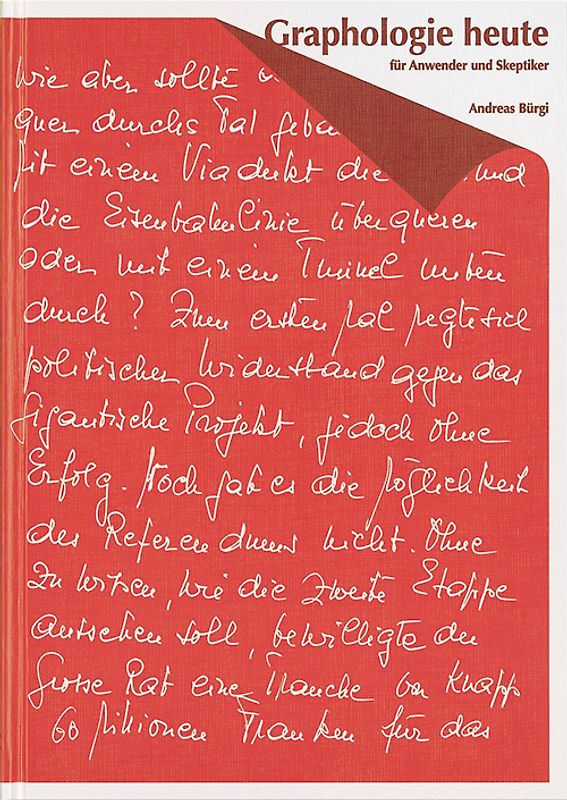 Graphologie heute
für Anwender und Skeptiker
Andreas Bürgi
Wie aber sollte
quer durchs Tal geba
Mit einem Viadukt die und
die Eisenbahnlinie überqueren
oder mit einem Tunnel unten
durch? Zum ersten Mal regte sich
politischer Widerstand gegen das
gigantische Projekt, jedoch ohne
Erfolg. Noch gab es die Möglichkeit
des Referendums nicht. Ohne
zu wissen, wie die zweite Etappe
aussehen soll, bewilligte der
Grosse Rat eine Tranche von knapp
60 Millionen Franken für das